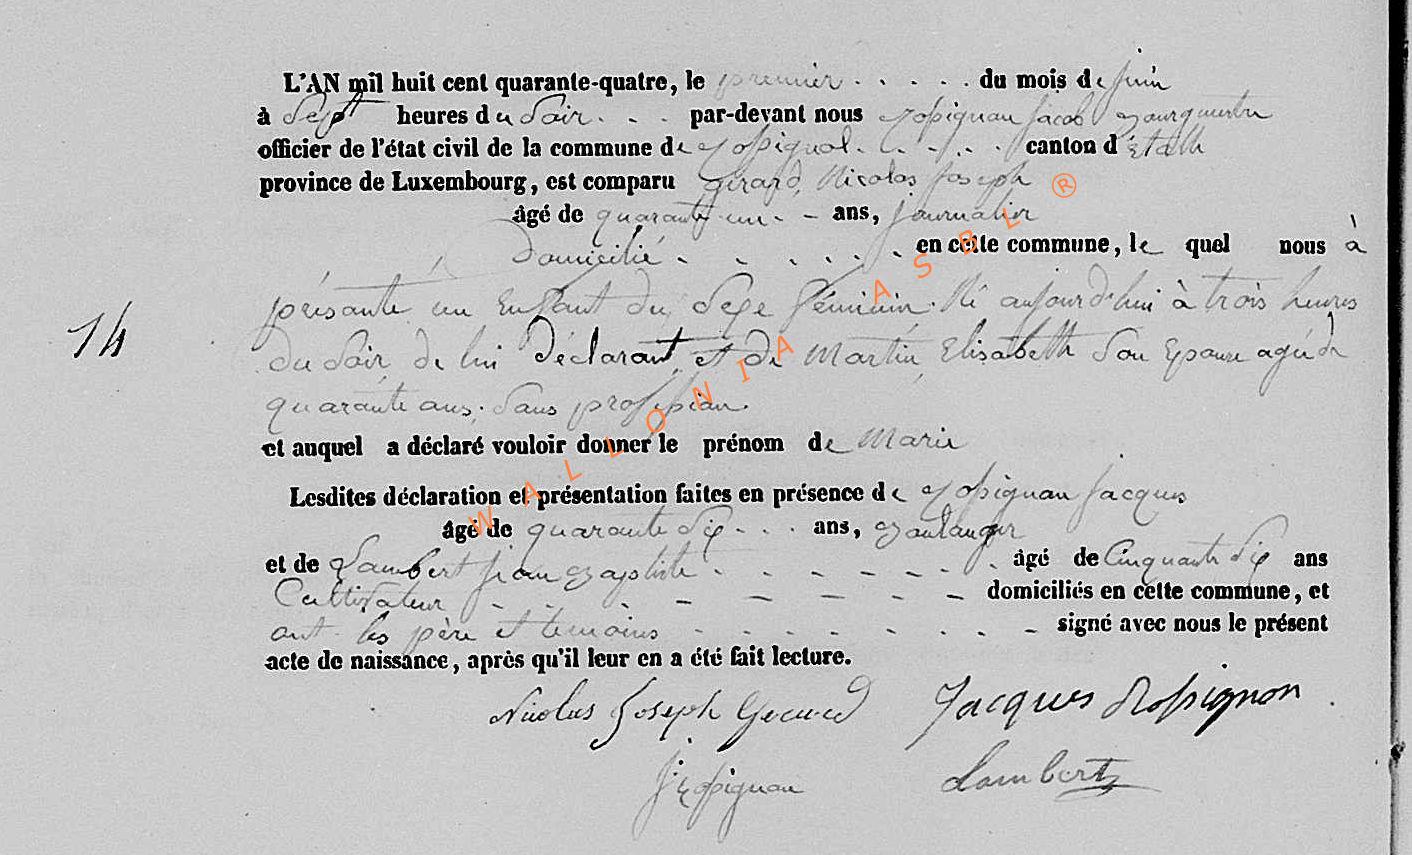 L'AN mil huit cent quarante-quatre, le premier du mois de juin
à Sept heures du Soir par-devant nous Rossignon Jacob Bourguemtre
officier de l'état civil de la commune de Rossignol canton d'Etalle
province de Luxembourg, est comparu Girard Nicolas Joseph
âgé de quarante un ans, journalier
Domicilié en cette commune, lequel nous à
présanté un Enfant du Sexe féminin. Né aujourd'hui à trois heures
du Soir de lui Déclarant et de Martin Elisabeth Son Epouse agée de
14
quarante ans. Sans profession
et auquel a déclaré vouloir donner le prénom de Marie
Lesdites déclaration et présentation faites en présence de Rossignon Jacques
âgé de quarante Six ans, Boulanger
et de Lambert Jean Baptiste âgé de Cinquante Six ans
Cultivateur domiciliés en cette commune, et
ont les père et temoins signé avec nous le présent
acte de naissance, après qu'il leur en a été fait lecture.
Nicolas Joseph Gerard Jacques Rossignon
J Rossignon Lambert
WALLONIA ASBL ®